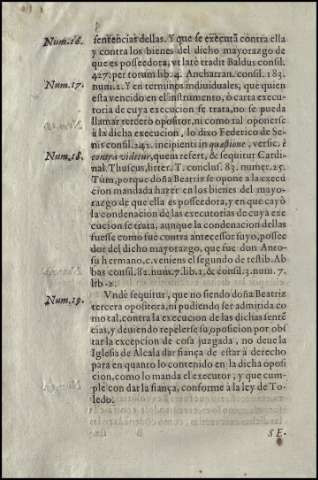 Num.16. sentencias dellas. Y que se executã contra ella
y contra los bienes del dicho mayorazgo de
que es posseedora, vt latè tradit Baldus consil.
427. per totum lib. 4. Ancharran. consil. 183.
Num.17. num. 2. Y en terminos indiuiduales, que quien
esta vencido en el instrumento, ò carta execu-
toria de cuya execucion se trata, no se pueda
llamar tercero opositor, ni como tal oponerse
à la dicha execucion, lo dixo Federico de Se-
nis consil. 242. incipienti in questione, versic. è
Num.18. contra videtur, quem refert, & sequitur Cardi-
nal. Thuscus, litter. T. conclus. 83. numer. 25.
Tùm, porque doña Beatriz se opone a la execu
cion mandada hazer en los bienes del mayo-
razgo de que ella es posseedora, y en que cayò
la condenacion de las executorias de cuya exe
cucion se trata, aunque la condenacion dellas
fuesse como fue contra antecessor suyo, possee
dor del dicho mayorazgo, que fue don Anto-
su hermano, c. veniens el segundo de testib. Ab
bas consil. 82. num. 7. lib. 2. & consil. 3. num. 7.
lib. 2.
Num.19. Vndè sequitur, que no siendo doña Beatriz
tercera opositora, ni pudiendo ser admitida co
mo tal, contra la execucion de las dichas senten
cias, y deuiendo repelerse su oposicion por obs
tar la excepcion de cosa juzgada, no deue la
Iglesia de Alcala dar fiança de estàr à derecho
para en quanto lo contenido en la dicha oposi
cion, como lo manda el executor, y que cum-
ple con dar la fiança, conforme à la ley de To-
ledo.
SE-